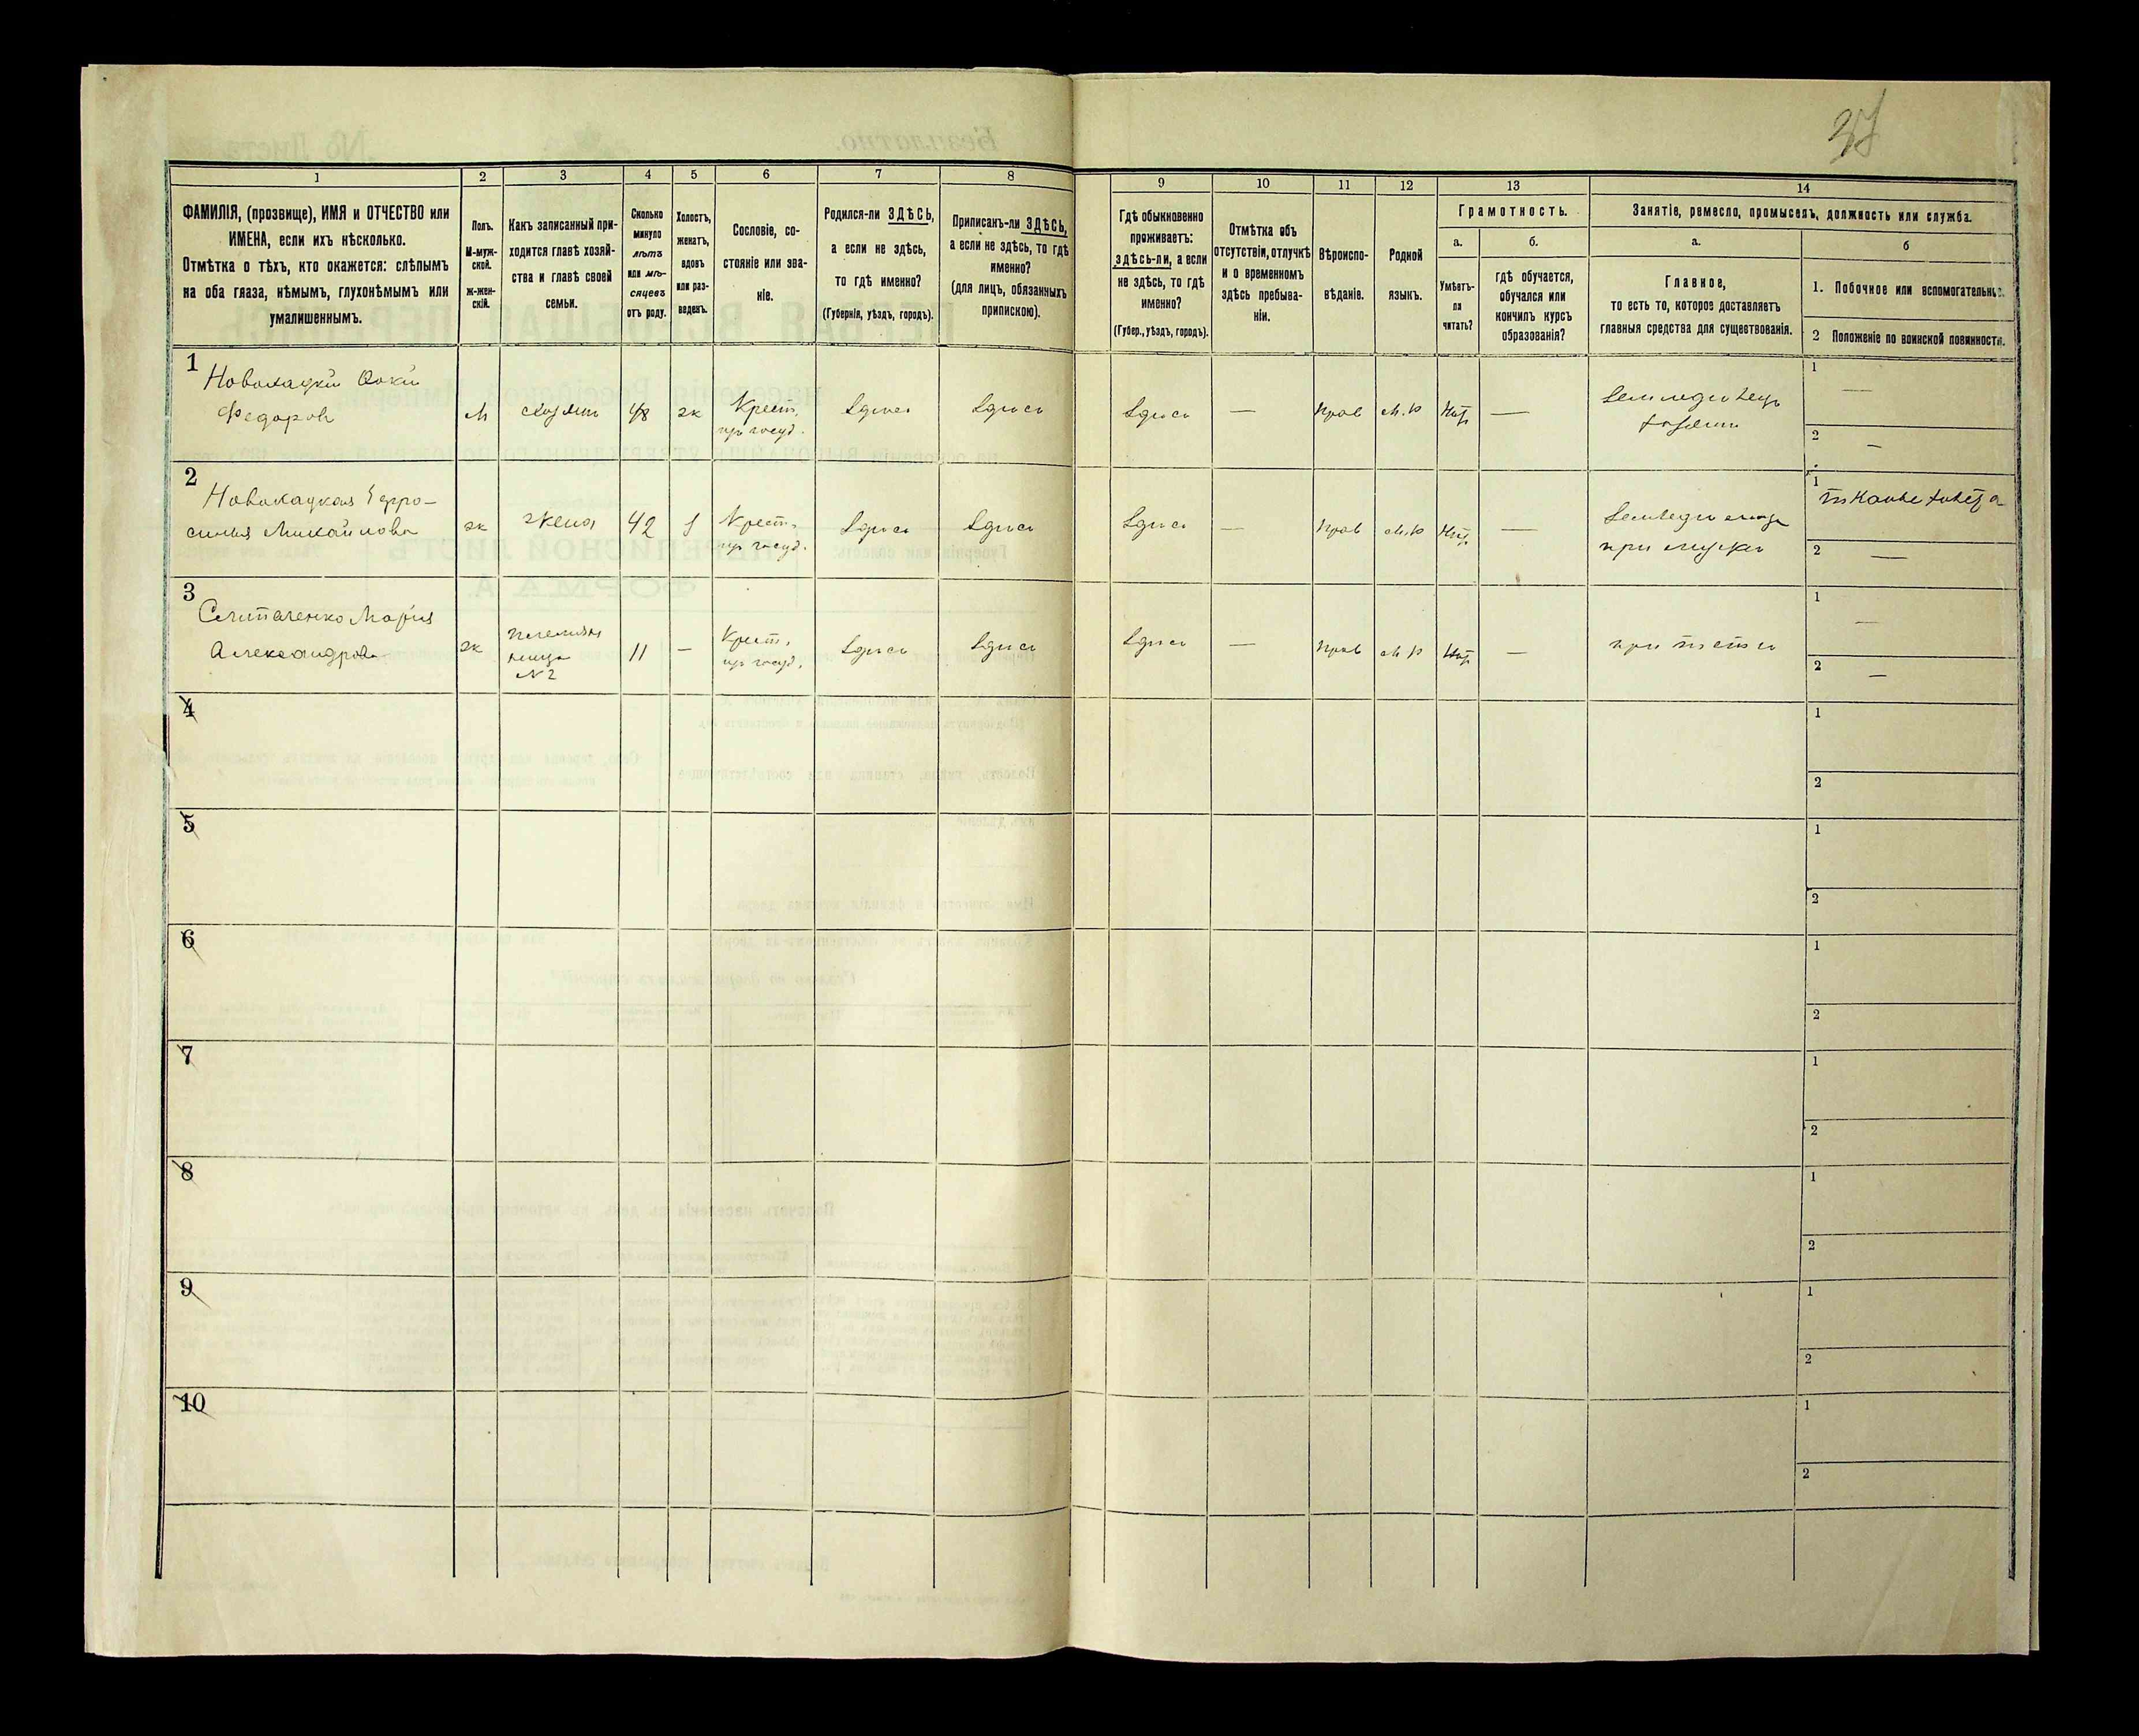 37
1 2 3 4 5 6 7 8 9 10 11 12 13 14
ФАМИЛІЯ, (прозвище), ИМЯ и ОТЧЕСТВО или
ИМЕНА, если ихъ нѣсколько.
Отмѣтка о тѣхъ, кто окажется: слѣпымъ
на оба глаза, нѣмымъ, глухонѣмымъ или
умалишеннымъ.
Полъ.
М-муж-
ской.
ж-жен-
скій.
Какъ записанный при-
ходится главѣ хозяй-
ства и главѣ своей
семьи.
Сколько
минуло
лѣтъ
или мѣ-
сяцевъ
отъ роду.
Холостъ,
женатъ,
вдовъ
или раз-
веденъ.
Сословіе, со-
стояніе или зва-
ніе.
Родился-ли ЗДѢСЬ,
а если не здѣсь,
то гдѣ именно?
(Губернія, уѣздъ, городъ).
Приписанъ-ли ЗДѢСЬ,
а если не здѣсь, то гдѣ
именно?
(для лицъ, обязанныхъ
припискою).
Гдѣ обыкновенно
проживаетъ:
здѣсь-ли, а если
не здѣсь, то гдѣ
именно?
(Губер., уѣздъ, городъ).
Отмѣтка объ
отсутствіи, отлучкѣ
и о временномъ
здѣсь пребыва-
ніи.
Вѣроиспо-
вѣданіе.
Родной
языкъ.
Грамотность.
а.
Умѣетъ-
ли
читать?
б.
гдѣ обучается,
обучался или
кончилъ курсъ
образованія?
Занятіе, ремесло, промыселъ, должность или служба.
а.
Главное,
то есть то, которое доставляетъ
главныя средства для существованія.
б
1. Побочное или вспомогательное.
2 Положеніе по воинской повинности.
1
Федоровъ
М
хозяинъ
48
ж
Крест.
изъ госуд.
здѣсь
здѣсь
здѣсь
—
прав
м.р
нѣтъ
—
земледѣлецъ
хозяинъ
1 —
2 —
2
Новохацкая Ефро-
синья Михайлова
ж
жена
42
з
Крест.
изъ госуд.
здѣсь
здѣсь
здѣсь
—
прав
м.р
нѣтъ
—
при мужѣ
1
2 —
3
Марія
Александрова
ж
племян
ница
№ 2
11
—
Крест.
изъ госуд.
здѣсь
здѣсь
здѣсь
—
прав
м р
нѣтъ
—
при теткѣ
1 —
2 —
4
1
2
5
1
2
6
1
2
7
1
2
8
1
2
9
1
2
10
1
2